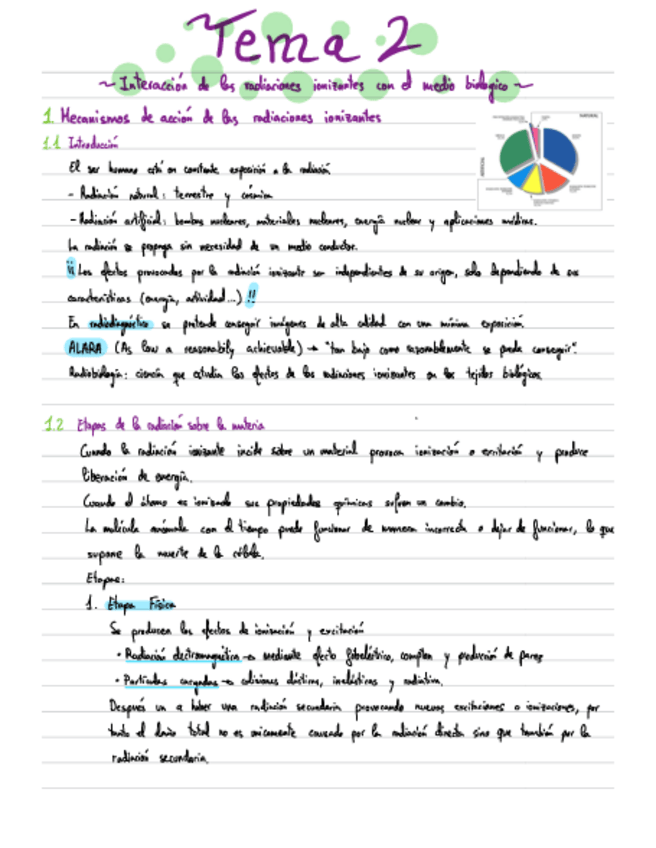 Tema 2
~ Interacción de las radiaciones ionizantes con el medio biológico ~
1. Mecanismos de acción de las radiaciones ionizantes
1.1 Introducción
El ser humano está en constante exposición a la radiación
- Radiación natural: terrestre y cósmica
- Radiación artificial: bombas nucleares, materiales nucleares, energía nuclear y aplicaciones médicas.
La radiación se propaga sin necesidad de un medio conductor.
¡¡ Los efectos provocados por la radiación ionizante son independientes de su origen, solo dependiendo de sus
características (energía, actividad...) !!
En radiodiagnóstico se pretende conseguir imágenes de alta calidad con una mínima exposición.
ALARA (As low a reasonabily achievable) → "tan bajo como razonablemente se pueda conseguir".
Radiobiología: ciencia que estudia los efectos de las radiaciones ionizantes en los tejidos biológicos.
1.2 Etapas de la radiación sobre la materia
Cuando la radiación ionizante incide sobre un material provoca ionización o excitación y produce
liberación de energía.
Cuando el átomo es ionizado sus propiedades químicas sufren un cambio.
La molécula anómala con el tiempo puede funcionar de manera incorrecta o dejar de funcionar, lo que
supone la muerte de la célula.
Etapas:
1. Etapa Física
Se producen los efectos de ionización y excitación
• Radiación electromagnética → mediante efecto fotoeléctrico, compton y producción de pares
• Partículas cargadas → colisiones elásticas, inelásticas y radiativa.
Después va a haber una radiación secundaria provocando nuevas excitaciones o ionizaciones, por
tanto el daño total no es únicamente causado por la radiación directa sino que también por la
radiación secundaria.